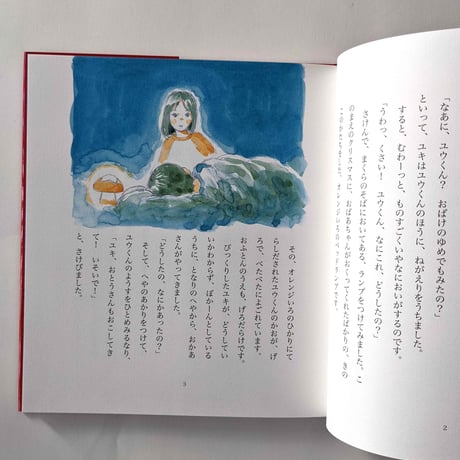 「なあに、ユウくん？　おばけのゆめでもみたの？」
といって、ユキはユウくんのほうに、ねがえりをうちました。
すると、むわーっと、ものすごくいやなにおいがするのです。
「うわっ、くさい！　ユウくん、なにこれ、どうしたの？」
さけんで、まくらのそばにおいてある、ランプをつけてみました。こ
のまえのクリスマスに、おばあちゃんがおくってくれたばかりの、きの
2
その、オレンジいろのひかりにて
らしだされたユウくんのかおが、げ
ろで、べたべたによごれています。
おふとんのうえも、げろだらけです。
びっくりしたユキが、どうしてい
いかわからず、ぽかーんとしている
うちに、となりのへやから、おかあ
さんがやってきました。
「どうしたの、なにかあったの？」
そして、へやのあかりをつけて、
ユウくんのようすをひとめみるなり、
「ユキ、おとうさんもおこしてき
て！　いそいで！」
と、さけびました。
3